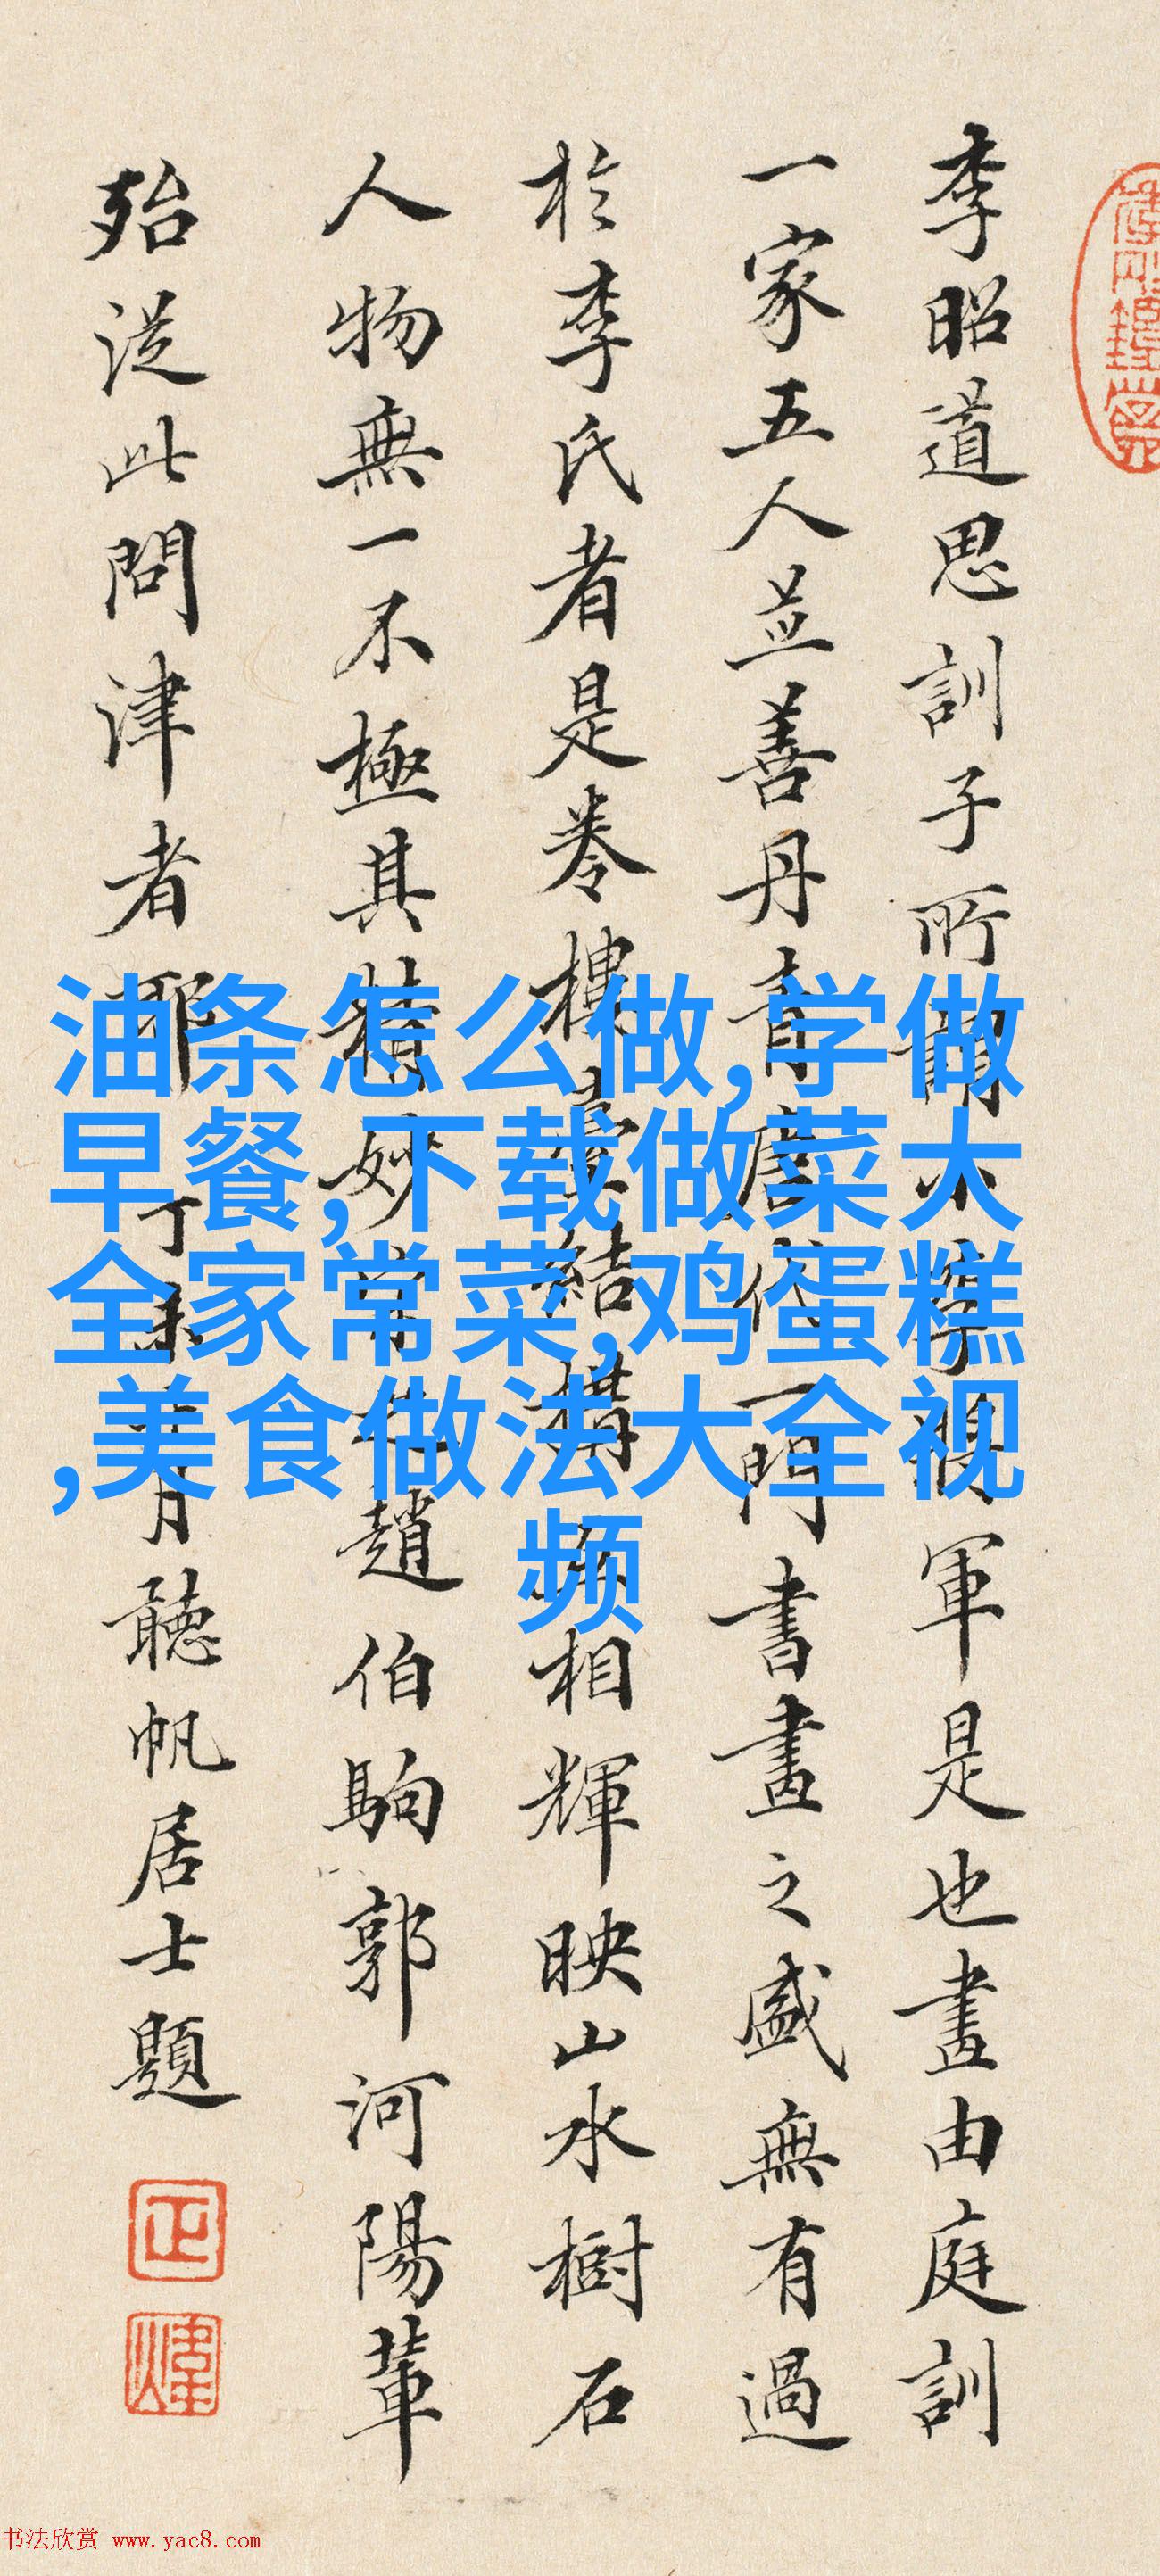 李昭道思訓子所謂小李將軍是也畫由庭訓
一家五人並善丹青唐代一門書畫之盛無有過
於李氏者是卷樓臺結構互相輝映山水樹石
人物無一不極其精妙宋之趙伯駒郭河陽輩
殆從此問津者耶丁未 月聽帆居士題
油条怎么做,学做
早餐,下载做菜大
全家常菜,鸡蛋糕
,美食做法大全视
频
书法欣赏 www.yac8.com